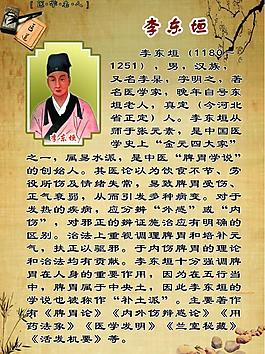 医学名人
李东垣
李东垣
李东垣（1180-
1251），男，汉族，
又名李杲，字明之，著
名医学家，晚年自号东
垣老人，真定（今河北
省正定）人。李东垣从
师于张元素，是中国医
学史上“金元四大家”
之一，属易水派，是中医“脾胃学说”
的创始人。其医论以为饮食不节、劳
役所伤及情绪失常，易致脾胃受伤、
正气衰弱，从而引发多种病变。对于
发热的疾病，应分辨“外感”或“内
伤”，对邪正的辨证施治应有明确的
区别。治法上重视调理脾胃和培补元
气，扶正以驱邪。于内伤脾胃的理论
和治法均有贡献。李东垣十分强调脾
胃在人身的重要作用，因为在五行当
中，脾胃属于中央土，因此李东垣的
学说也被称作“补土派”。主要著作
有《脾胃论》《内外伤辩惑论》《用
药法象》《医学发明》《兰室秘藏》
《活发机要》等。